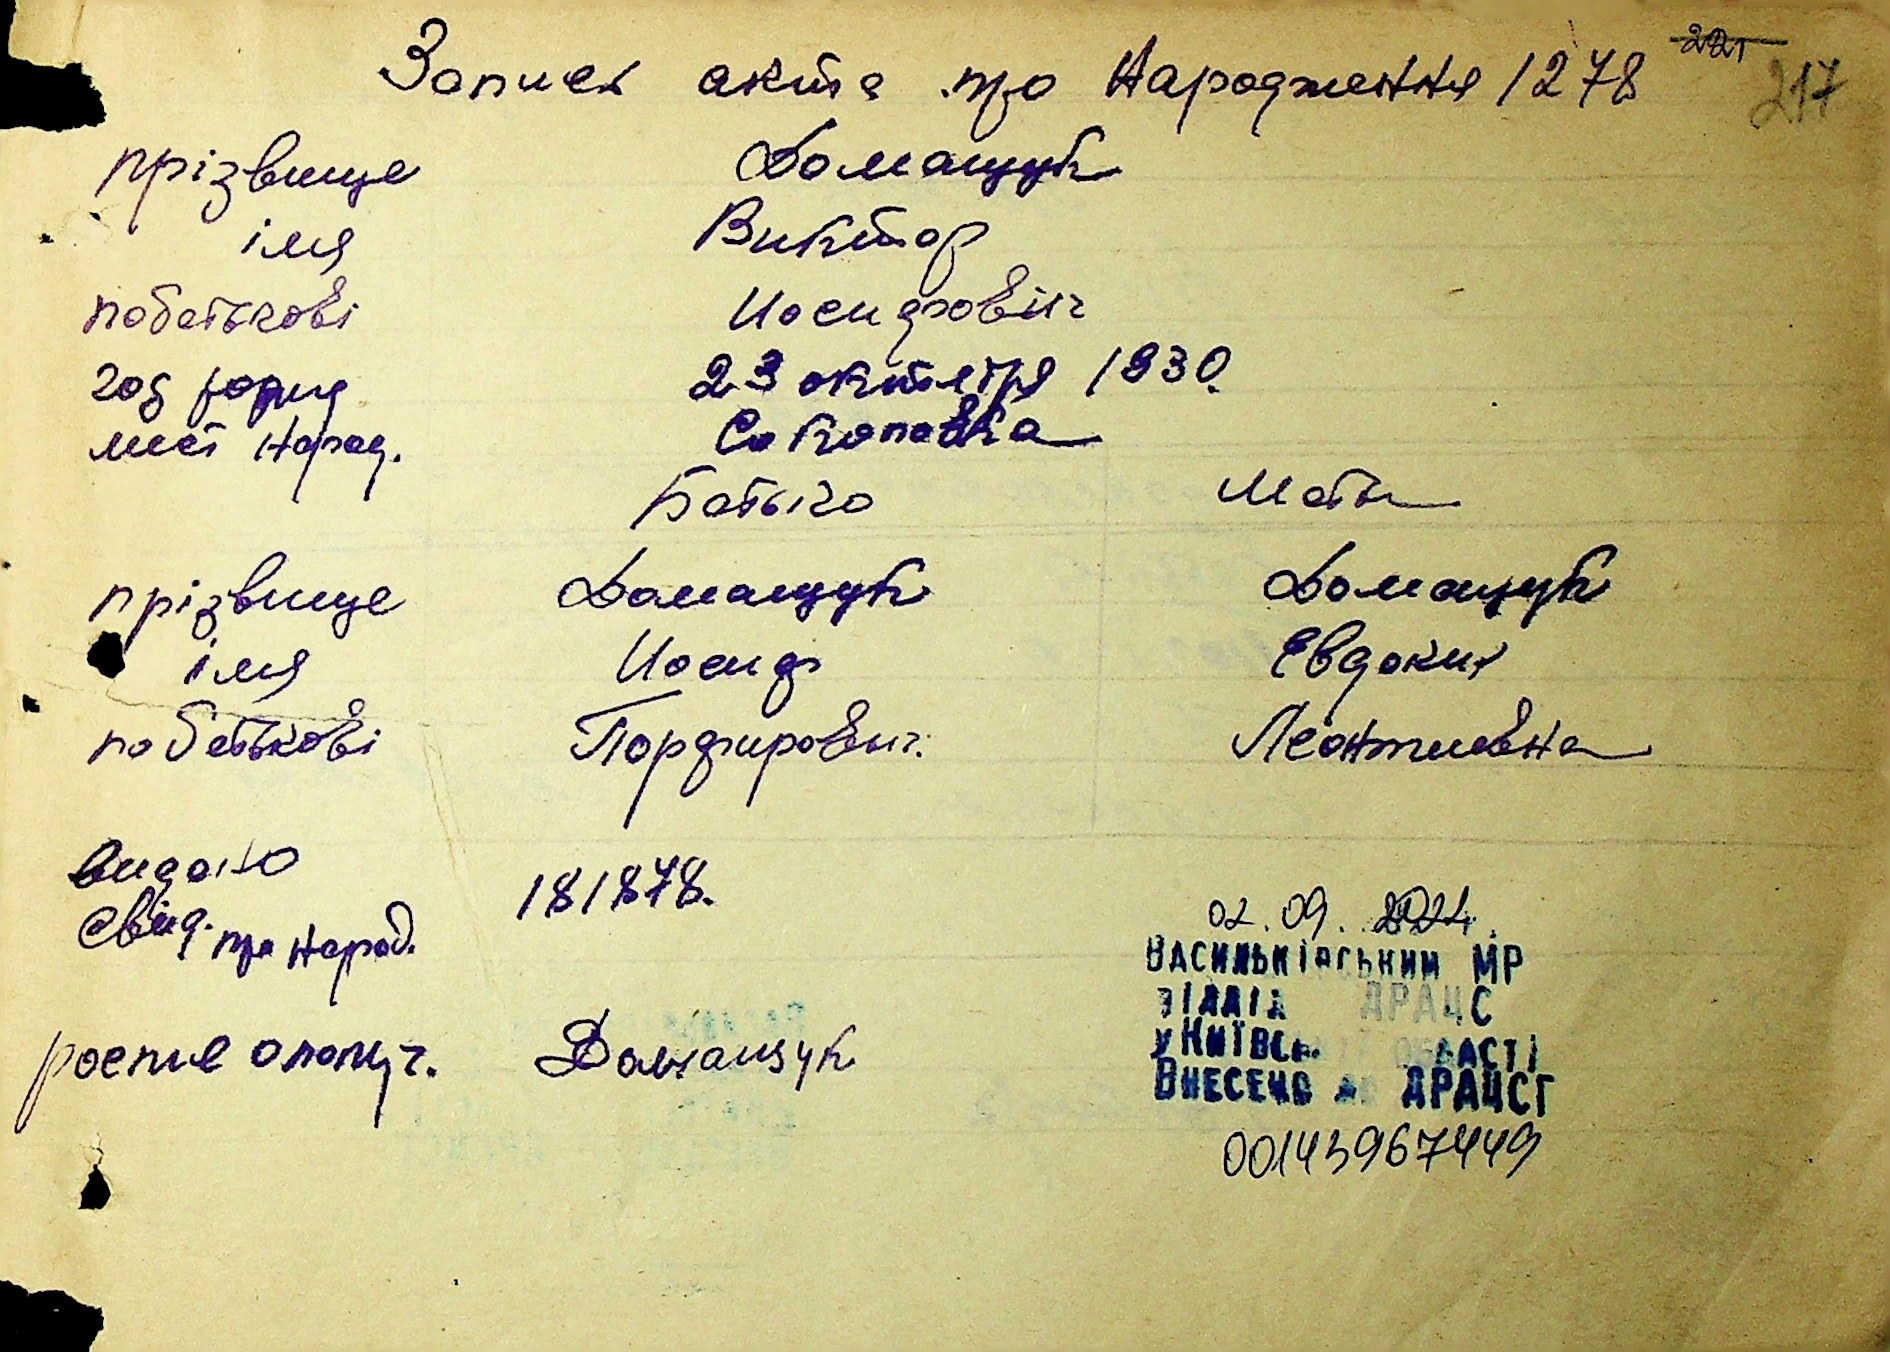 Запись акта про Народження 1278
221
217
прізвище Домащук
імя Виктор
побатькові Иосифович
год родищ 23 октября 1930.
мест народ. Соколовка
Батько Мать
прізвище Домащук Домащук
імя Иосиф Евдокия
побатькові Порфирович. Леонтиевна
видано
свид. про народ. 181878.
02.09.2021.
Васильківський МР
відділ ДРАЦС
у Київській області
Внесено до ДРАЦСГ
роспис получ. Домащук